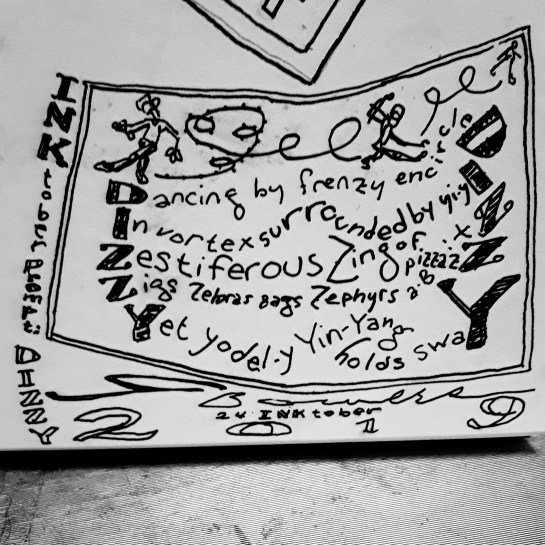 INK
tober
Dancing by frenzy encircled
In vortex surrounded by
Zestiferous Zing of pizzaz
Zigs Zebras zags Zephyrs
Yet yodel-y Yin-Yang holds sway
DIZZY
Bowers
24 INKtober
2019